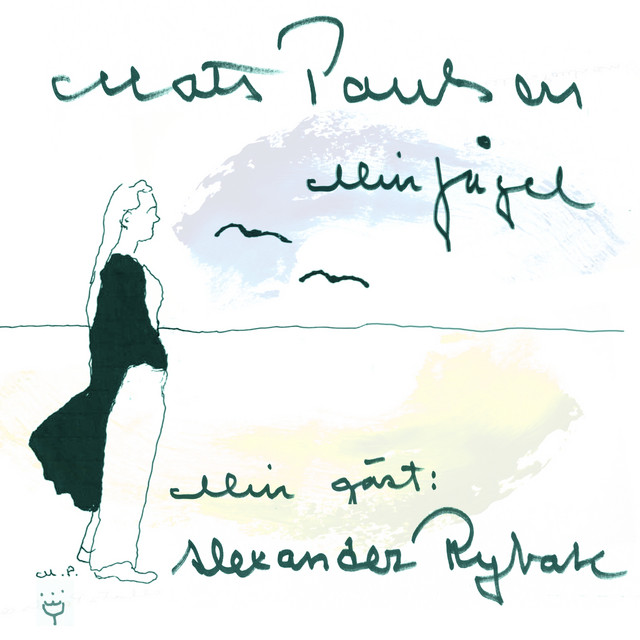 Mats Paulson
Min fågel
Min gäst:
Alexander Rybak
M.P.